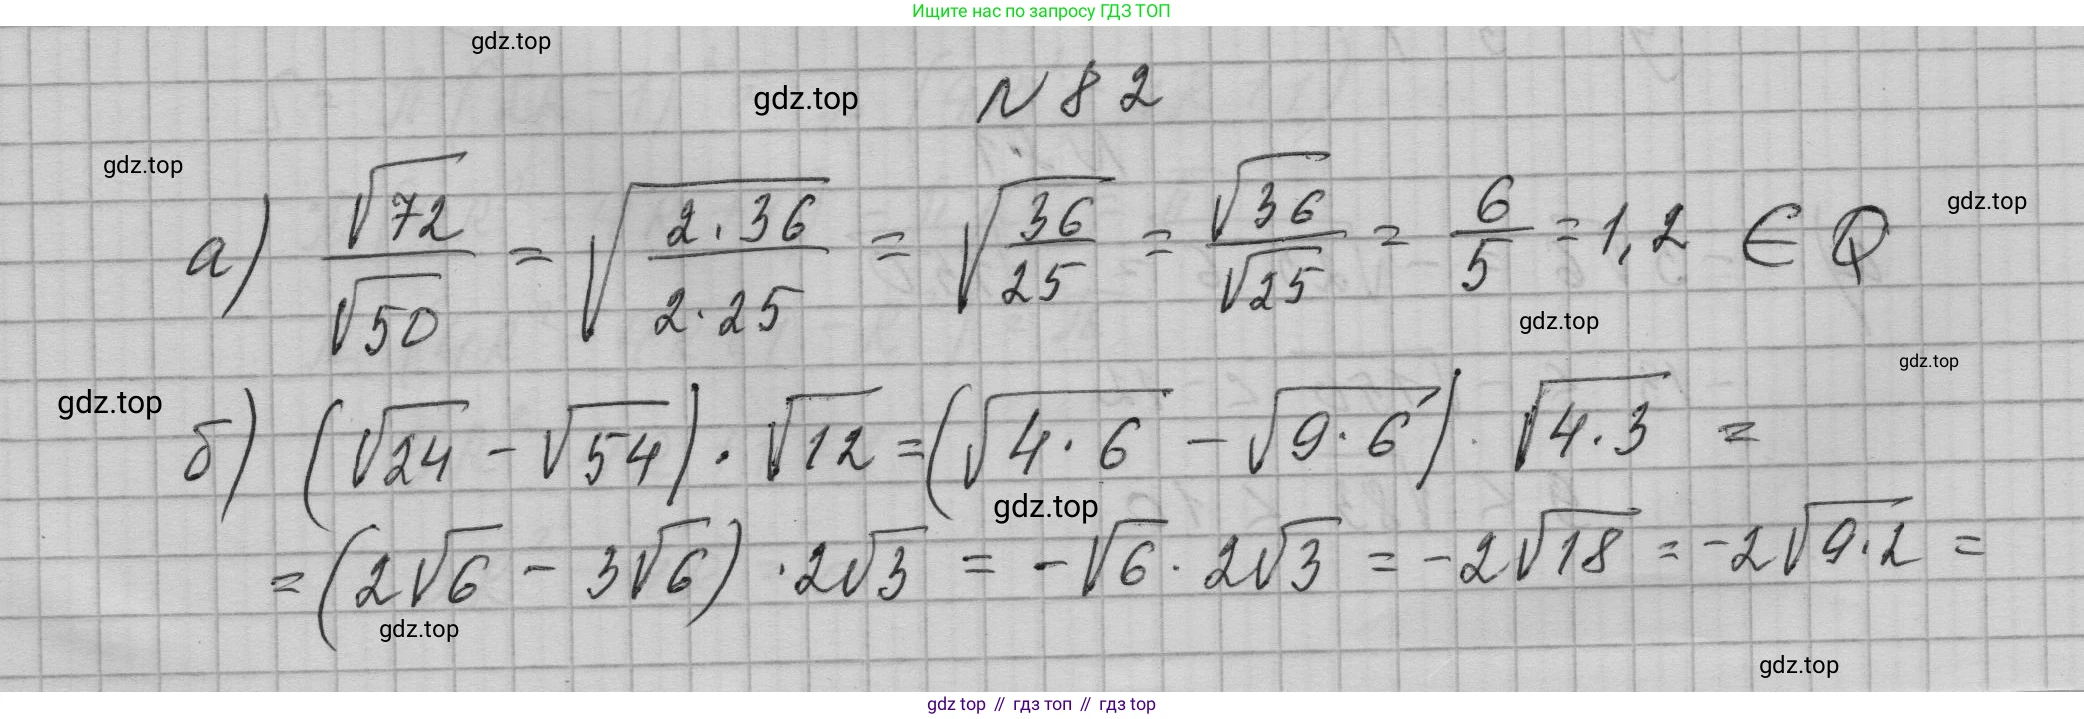 Ищите нас по запросу ГДЗ ТОП
gdz.top
gdz.top
N 82
gdz.top
gdz.top
а) √72/√50 = √(2·36/2·25) = √(36/25) = √36/√25 = 6/5 = 1,2 ∈ Q
gdz.top
gdz.top
gdz.top
б) (√24 - √54) · √12 = (√4·6 - √9·6) · √4·3 =
gdz.top
= (2√6 - 3√6) · 2√3 = -√6 · 2√3 = -2√18 = -2√9·2 =
gdz.top
gdz.top
gdz top // гдз топ // гдз top